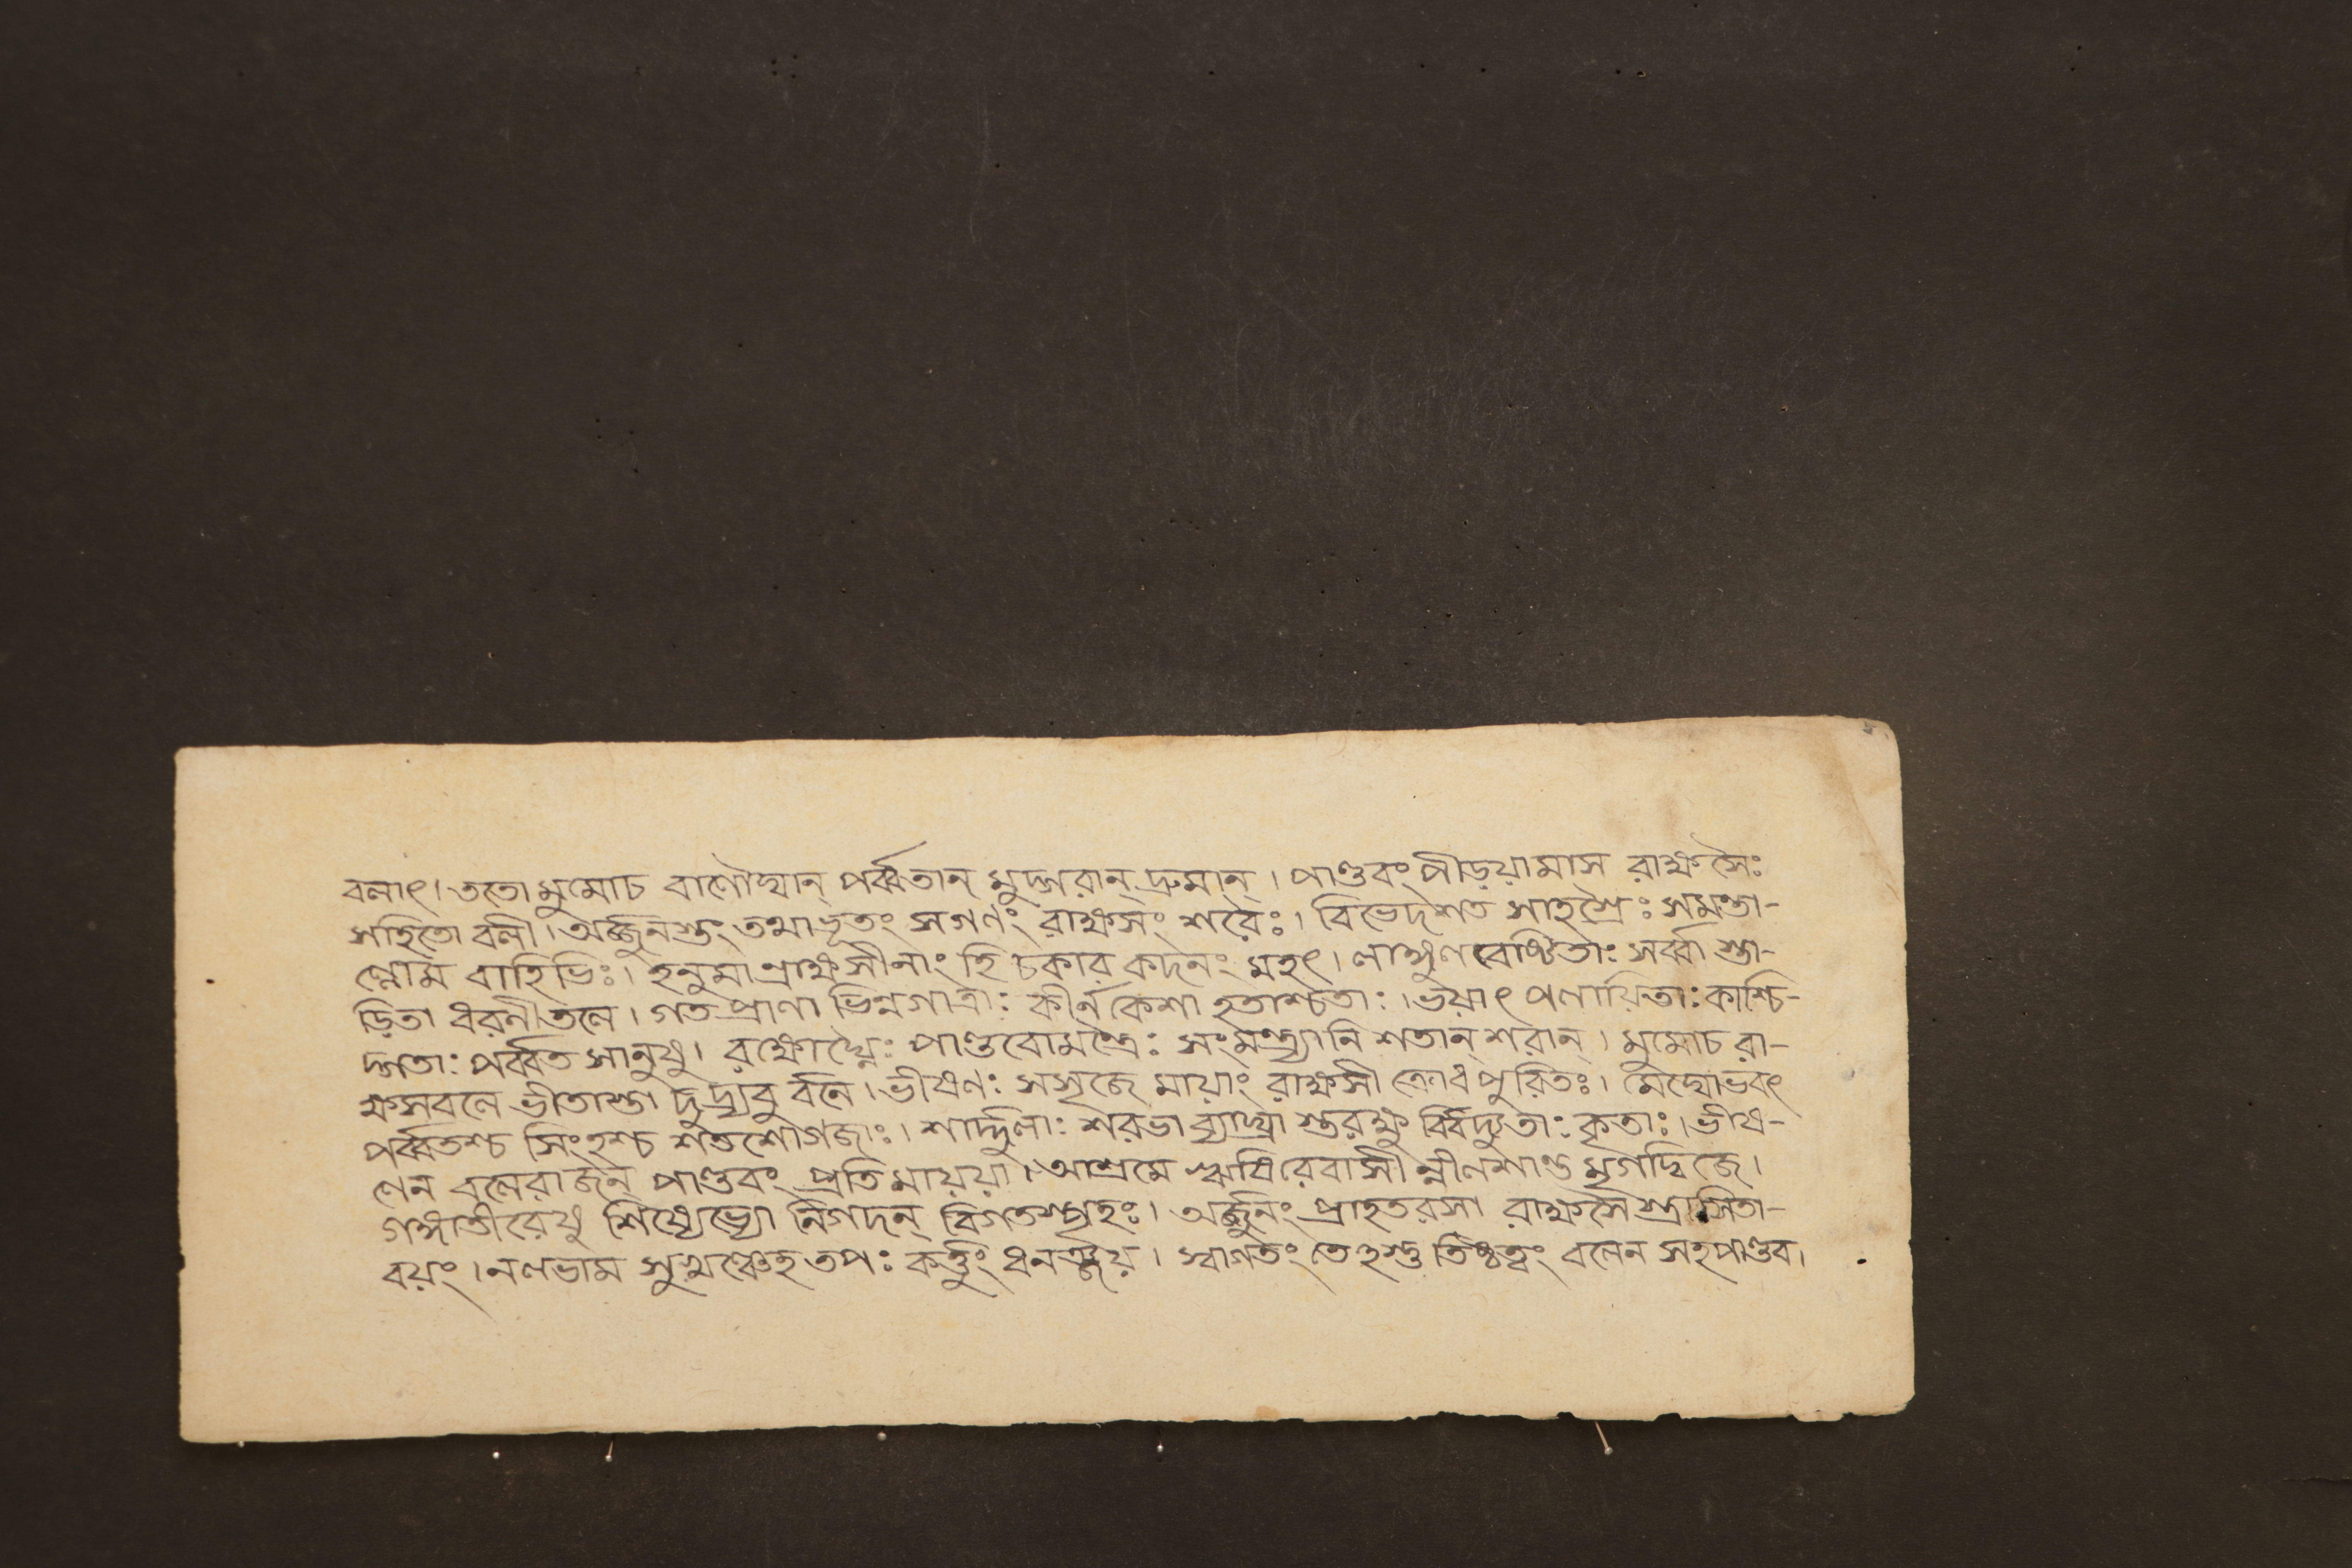 বলাৎ। ততো মুমোচ বাণৌঘান্ পর্ব্বতান্ মুদ্গরান্ দ্রুমান্। পাণ্ডবং পীড়য়ামাস রাক্ষসৈঃ
সহিতো বলী। অর্জ্জুনস্তং তথাভূতং সগণং রাক্ষসং শরৈঃ। বিভেদ শত সাহস্রৈঃ সমন্তা-
ল্লোম বাহিভিঃ। হনুমান্রাক্ষসীনাং হি চকার কদনং মহৎ। লাঙ্গুল বেষ্টিতাঃ সর্ব্বা স্তা-
ড়িতা ধরণীতলে। গতপ্রাণা ভিন্নগাত্রাঃ কীর্ন কেশা হতাশ্চতাঃ। ভয়াৎ পলায়িতাঃ কাশ্চি-
দ্গতাঃ পর্ব্বত সানুষু। রক্ষোঘ্নৈঃ পাণ্ডবোমন্ত্রৈঃ সংমন্ত্র্যানি শতান্ শরান্। মুমোচ রা-
ক্ষসবলে ভীতাস্তা দুদ্রুবু র্বনে। ভীষণঃ সসৃজে মায়াং রাক্ষসী ক্রোধ পুরিতঃ। মেঘোভবৎ
পর্ব্বতশ্চ সিংহশ্চ শতশোগজাঃ। শার্দ্দূলাঃ শরভা ব্যাঘ্রা স্তরক্ষু র্বিবিদ্রুতাঃ কৃতাঃ। ভীষ-
ণেন বলেরাজন্ পাণ্ডবং প্রতি মায়য়া। আশ্রমে ঋষিরেবাসী ন্নীলশাণ্ড মৃগদ্বিজে।
গঙ্গাতীরেষু শিষ্যেভ্যো নিগদন্ বিগতস্পৃহঃ। অর্জ্জুনং প্রাহতরসা রাক্ষসৈ স্ত্রাসিতা-
বয়ং। নলভাম সুখঞ্চেহ তপঃ কর্ত্তুং ধনঞ্জয়। স্বাগতং তেহস্তু তিষ্ঠত্বং বলেন সহ পাণ্ডব।